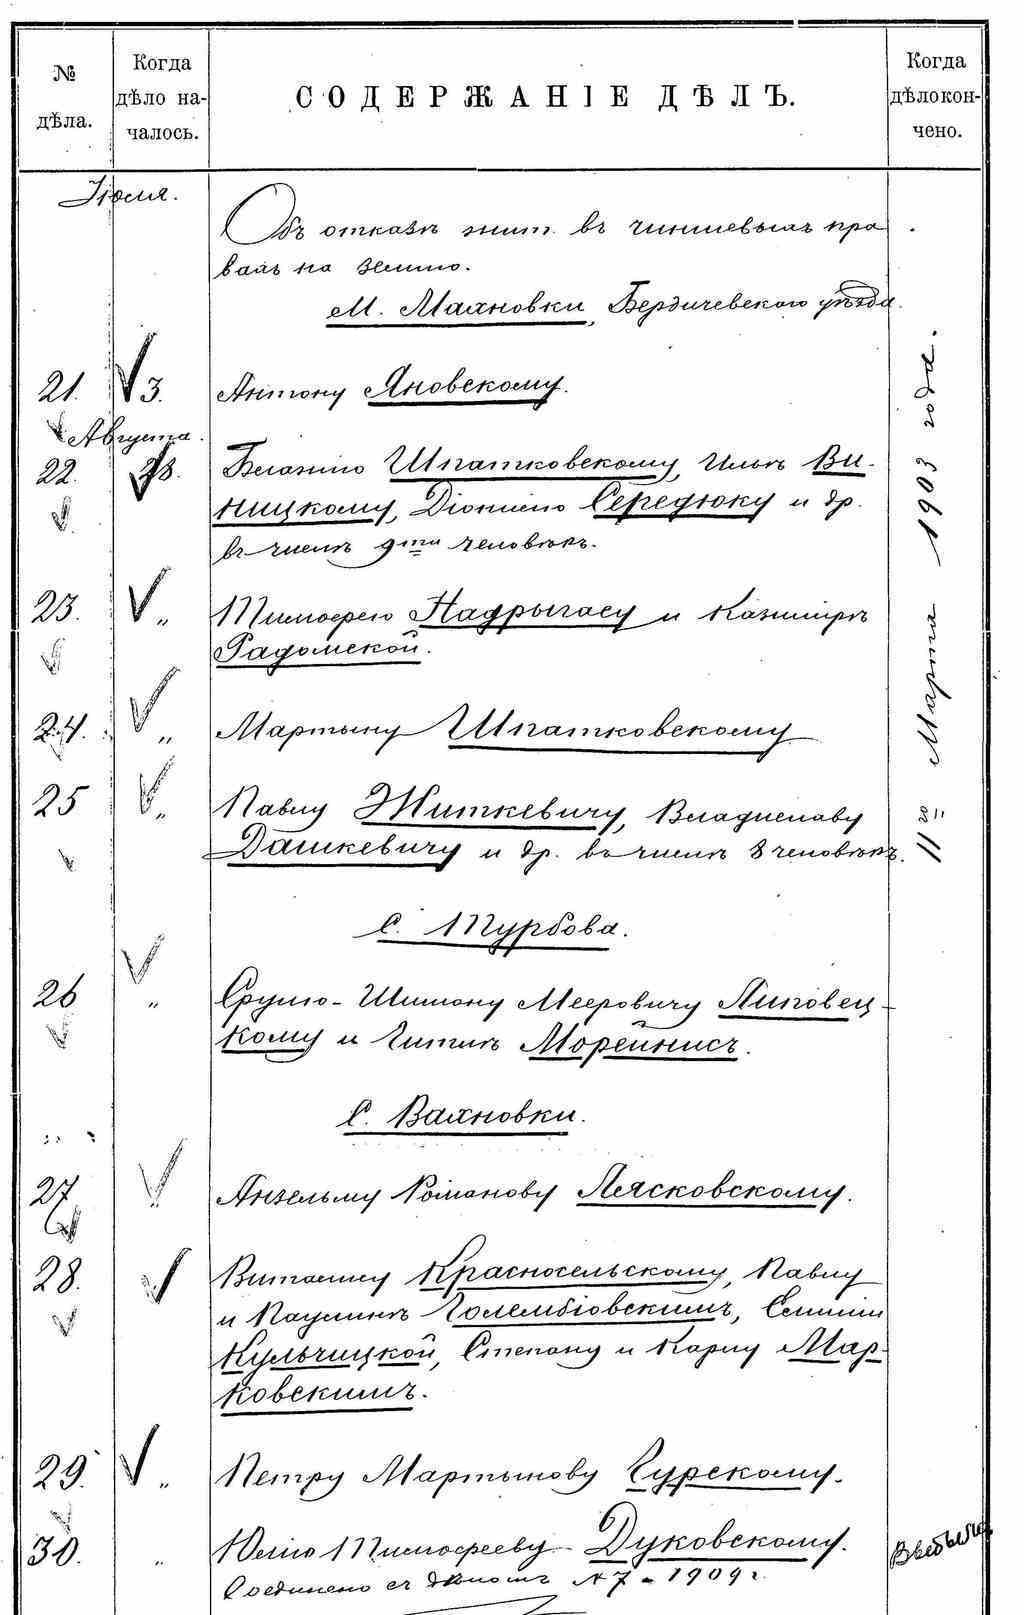 № дѣла.
Когда дѣло на-
чалось.
СОДЕРЖАНІЕ ДѢЛЪ.
Когда
дѣло кон-
чено.
Іюля.
Объ отказѣ жит. въ чиншевыхъ пра
вахъ на землю.
М. Махновки, Бердичевского уѣзда.
21. 3. Антону Яновскому.
Августа.
22. 28. Блажію Шпатковскому, Ильѣ Ви-
ницкому, Діонисію Середюку и др.
въ числѣ 9ти человѣкъ.
23. „ Тимофею Надрыгасу и Казимірѣ
Радомской.
24. „ Мартыну Шпатковскому
25 „ Павлу Житкевичу, Владиславу
Дашкевичу и др. въ числѣ 8 человѣкъ.
С. Турбова.
26 „ Срулю-Шимону Мееровичу Липовец-
кому и Гитлѣ Морейнисъ.
С. Вахновки.
27 „ Анзельму Романову Лясковскому.
28. Виталису Красносельскому, Павлу
и Паулинѣ Голембіовскимъ, Емиліи
Кульчицкой, Степану и Карлу Мар-
ковскимъ.
29. „ Петру Мартынову Гурскому.
30. „ Юлію Тимофееву Дуковскому.
Соединено съ дѣломъ № 7 - 1909 г.
11го Марта 1903 года.